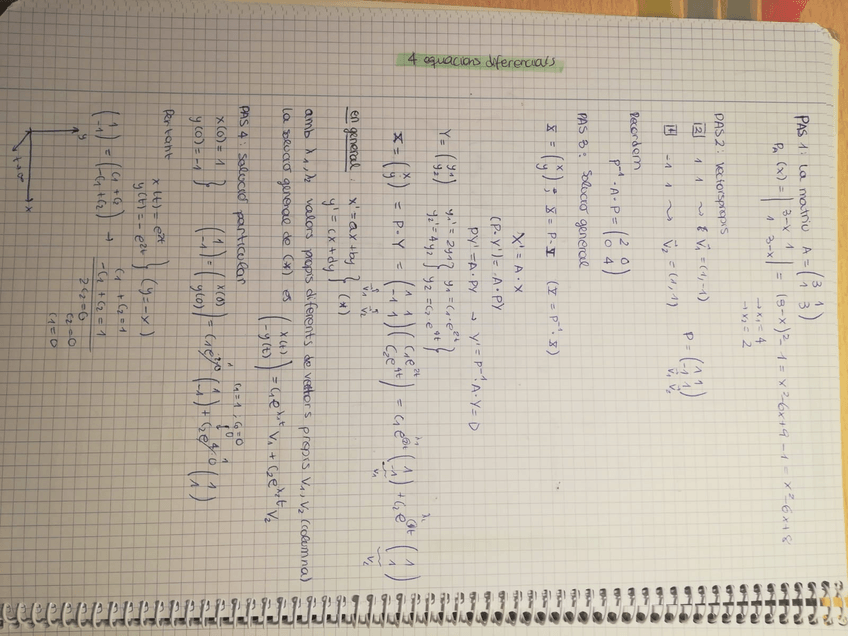 4 equacions diferencials
PAS 1: La matriu A = (3 1 / 1 3)
Pₐ(x) = |3-x 1 / 1 3-x| = (3-x)² - 1 = x² - 6x + 9 - 1 = x² - 6x + 8
→ x₁ = 4
→ x₂ = 2
PAS 2: Vectors propis
[2] 1 1 ~ v⃗₁ = (1, -1)
[4] -1 1 ~ v⃗₂ = (1, 1)
P = (1 1 / -1 1)
v⃗₁ v⃗₂
Recordem
P⁻¹ · A · P = (2 0 / 0 4)
PAS 3: Solució general
X' = A · X
(P·Y') = A · PY
PY' = A · PY → Y' = P⁻¹A·Y = D
Y = (y₁ / y₂) y₁' = 2y₁ } y₁ = c₁ · e²ᵗ
y₂' = 4y₂ } y₂ = c₂ e⁴ᵗ }
X = (x / y) = P · Y = (1 1 / -1 1) (c₁e²ᵗ / c₂e⁴ᵗ) = c₁e²ᵗ (1 / -1) + c₂e⁴ᵗ (1 / 1)
en general: x' = ax + by }
y' = cx + dy } (*)
amb λ₁, λ₂ valors propis diferents de vectors propis v₁, v₂ (columna)
La solució general de (*) es (x(t) / -y(t)) = c₁e^λ₁t v₁ + c₂e^λ₂t v₂
PAS 4: Solució particular
c₁ = 1, c₂ = 0
x(0) = 1 }
y(0) = -1 } (1 / -1) = (x(0) / y(0)) = c₁e²·⁰ (1 / -1) + c₂e⁴·⁰ (1 / 1)
Per tant
x(t) = e²ᵗ
y(t) = -e²ᵗ } (y = -x)
(1 / -1) = (c₁ + c₂ / -c₁ + c₂) → c₁ + c₂ = 1
-c₁ + c₂ = 1
2c₂ = 0
c₂ = 0
c₁ = 0
y
x